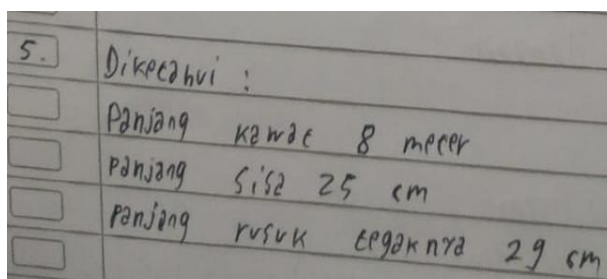 5. Diketahui :
Panjang kawat 8 meter
panjang sisa 25 cm
panjang rusuk tegaknya 29 cm